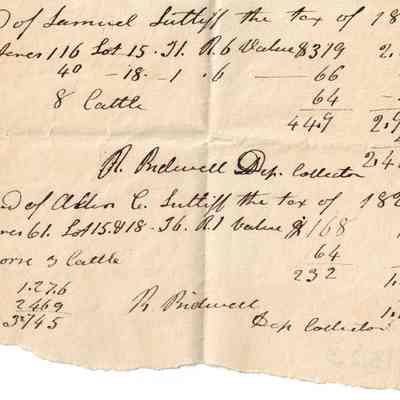 D of Samuel Sutliff the tax of 18
Acres 116 Lot 15. T1. R.6 Value $319 2.
40 - 18. - 1 . 6 — 66
8 Cattle 64
449 2.
R. Bidwell Dep. Collector 2.4
d of Albin C. Sutliff the tax of 18
res 61. Lot 15 & 18 - T6. R.1 Value $168
orse 3 Cattle 64
232 1.
1.276
2469 R Bidwell 1.
3745 Dep Collector